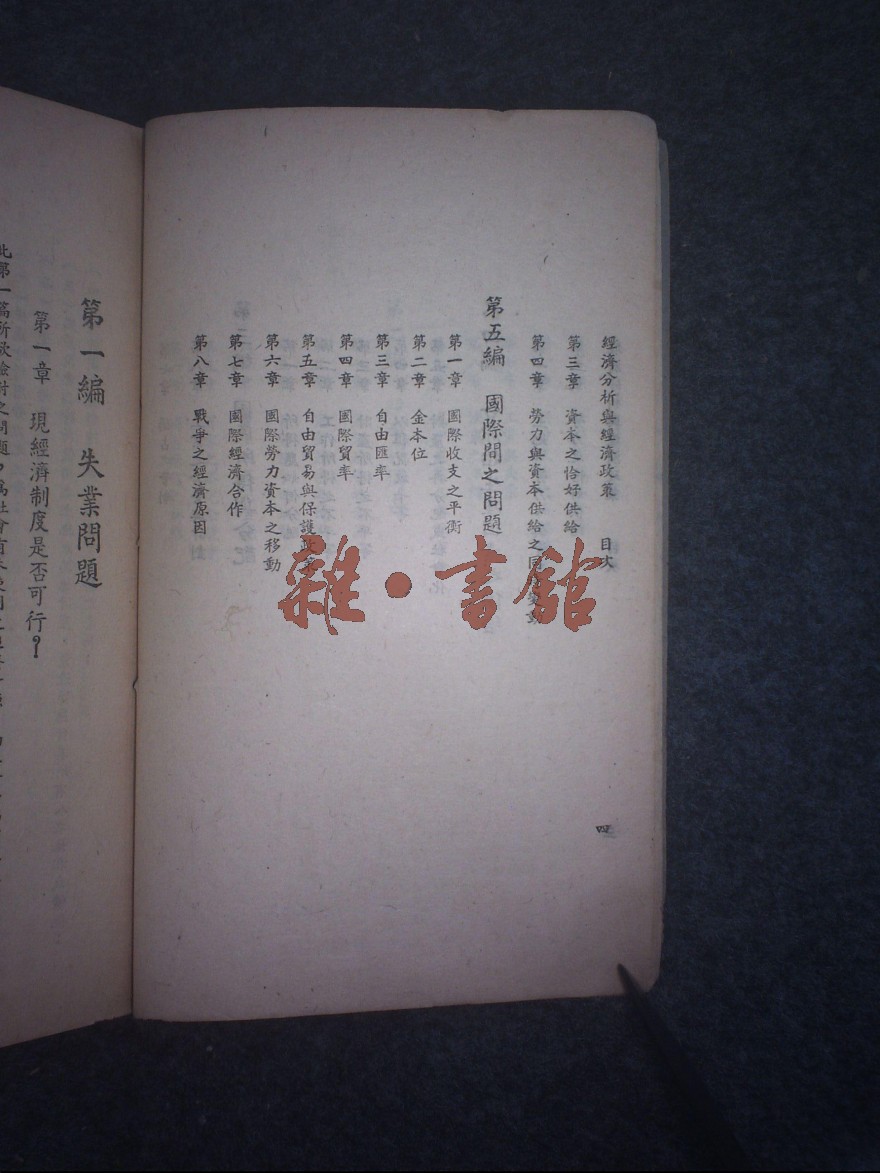 經濟分析與經濟政策 目次
第三章 資本之恰好供給
第四章 勞力與資本供給之同
第五編 國際間之問題
第一章 國際收支之平衡
第二章 金本位
第三章 自由匯率
第四章 國際貿率
第五章 自由貿易與保護政策
第六章 國際勞力資本之移動
第七章 國際經濟合作
第八章 戰爭之經濟原因
四
雜·書館
第一編 失業問題
第一章 現經濟制度是否可行?
此第一篇所欲檢討之問題